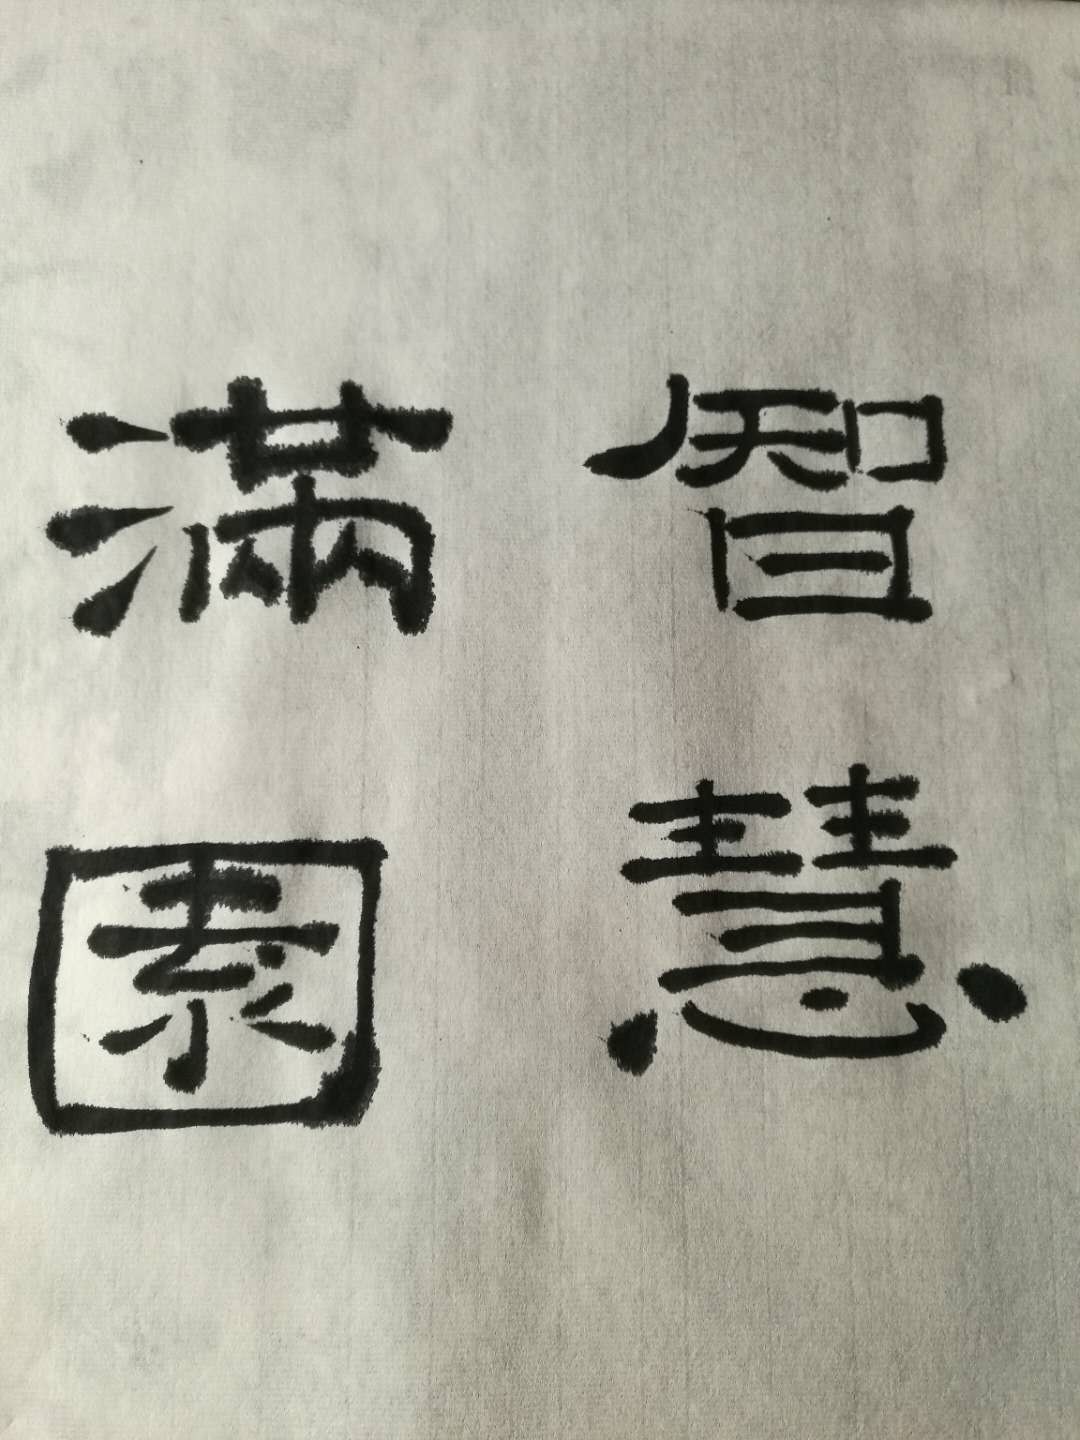 智慧
滿園